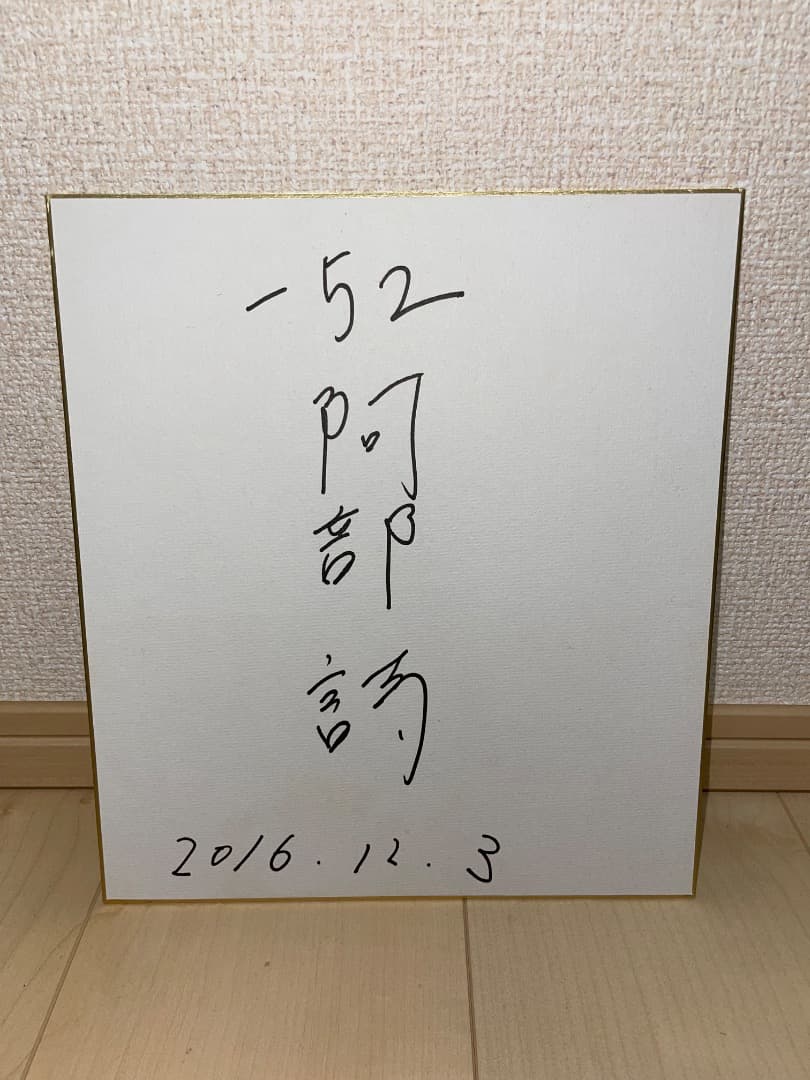 -52
阿部詩
2016.12.3